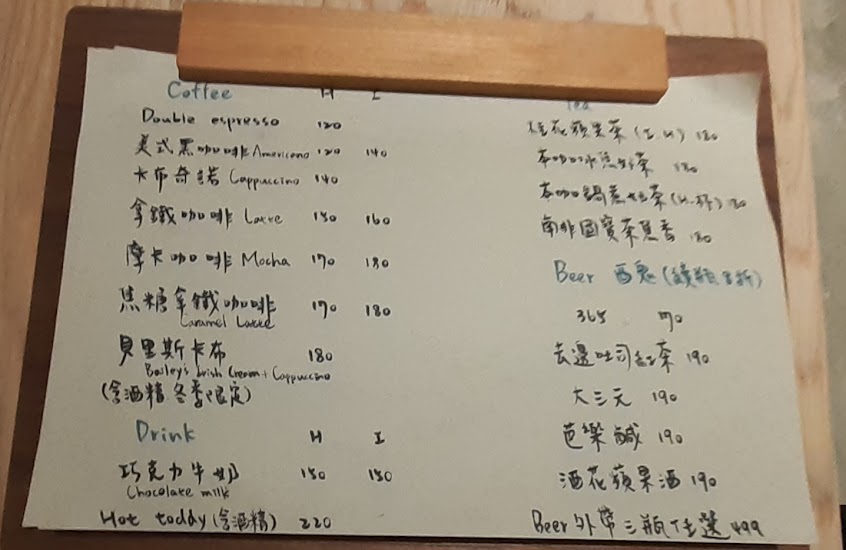 Coffee H I
Double espresso 120
美式黑咖啡 Americano 120 140
卡布奇諾 Cappuccino 140
拿鐵咖啡 Latte 150 160
摩卡咖啡 Mocha 170 180
焦糖拿鐵咖啡 170 180
Caramel Latte
貝里斯卡布 180
Bailey's Irish Cream + Cappuccino
(含酒精 冬季限定)
Drink H I
巧克力牛奶 150 150
Chocolate milk
Hot toddy (含酒精) 220
Tea
桂花蘋果茶 180
本咖 茶 180
本咖鍋煮奶茶 180
南非國寶茶 180
Beer 酒鬼
365 170
去邊吐司紅茶 190
大三元 190
芭樂鹹 190
酒花蘋果酒 190
Beer 外帶三瓶任選 499